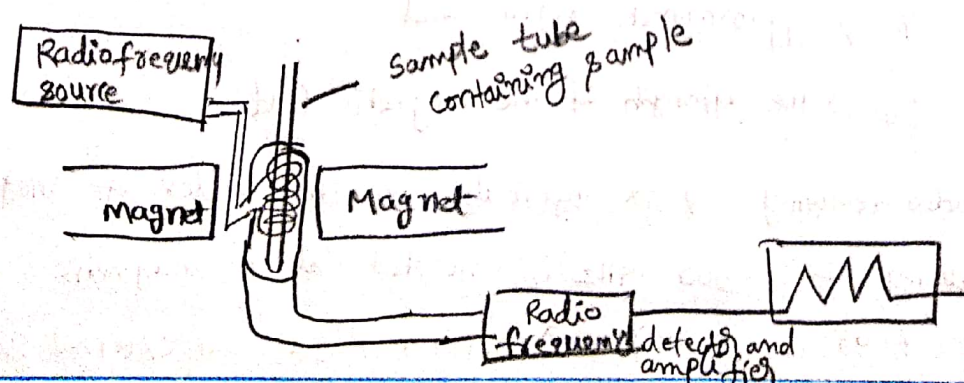 Radiofrequency
source
Sample tube
containing sample
Magnet
Magnet
Radio
frequency detector and
amplifier